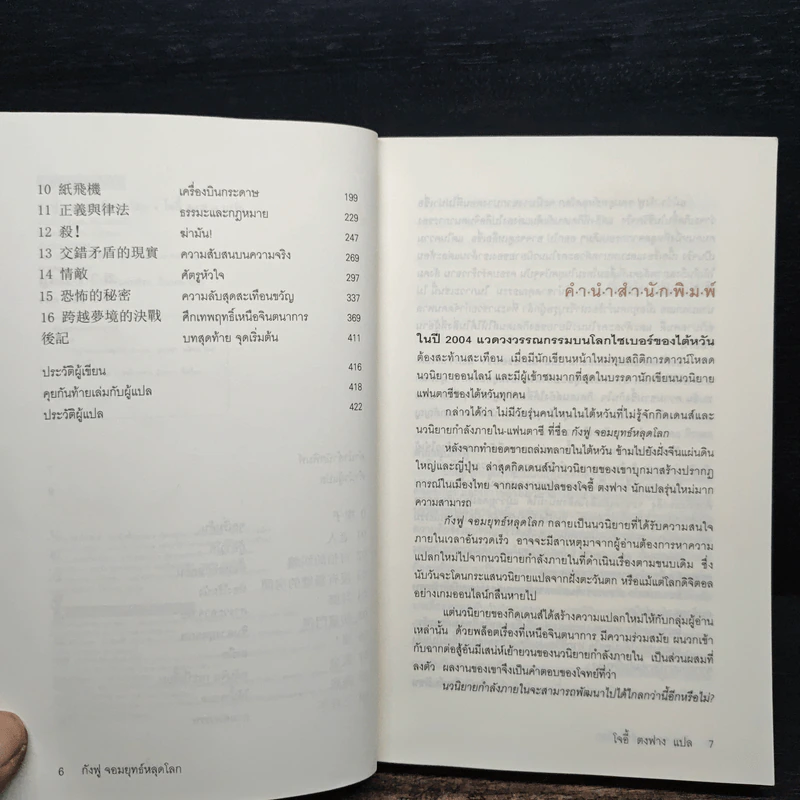 10 紙飛機 เครื่องบินกระดาษ 199
11 正義與律法 ธรรมะและกฎหมาย 229
12 殺！ ฆ่ามัน! 247
13 交錯矛盾的現實 ความสับสนบนความจริง 269
14 情敵 ศัตรูหัวใจ 297
15 恐怖的秘密 ความลับสุดสะเทือนขวัญ 337
16 跨越夢境的決戰 ศึกเทพฤทธิ์เหนือจินตนาการ 369
後記 บทสุดท้าย จุดเริ่มต้น 411
ประวัติผู้เขียน 416
คุยกันท้ายเล่มกับผู้แปล 418
ประวัติผู้แปล 422
6 กังฟู จอมยุทธ์หลุดโลก
คำ·นำ·สำ·นัก·พิ·ม·พ์
ในปี 2004 แวดวงวรรณกรรมบนโลกไซเบอร์ของไต้หวัน
ต้องสะท้านสะเทือน เมื่อมีนักเขียนหน้าใหม่ทุบสถิติการดาวน์โหลด
นวนิยายออนไลน์ และมีผู้เข้าชมมากที่สุดในบรรดานักเขียนนวนิยาย
แฟนตาซีของไต้หวันทุกคน
กล่าวได้ว่า ไม่มีวัยรุ่นคนไหนในไต้หวันที่ไม่รู้จักกิดเดนส์และ
นวนิยายกำลังภายใน-แฟนตาซี ที่ชื่อ กังฟู จอมยุทธ์หลุดโลก
หลังจากทำยอดขายถล่มทลายในไต้หวัน ข้ามไปยังฝั่งจีนแผ่นดิน
ใหญ่และญี่ปุ่น ล่าสุดกิดเดนส์นำนวนิยายของเขาบุกมาสร้างปรากฏ
การณ์ในเมืองไทย จากผลงานแปลของโจอี้ ตงฟาง นักแปลรุ่นใหม่มาก
ความสามารถ
กังฟู จอมยุทธ์หลุดโลก กลายเป็นนวนิยายที่ได้รับความสนใจ
ภายในเวลาอันรวดเร็ว อาจจะมีสาเหตุมาจากผู้อ่านต้องการหาความ
แปลกใหม่ไปจากนวนิยายกำลังภายในที่ดำเนินเรื่องตามขนบเดิม ซึ่ง
นับวันจะโดนกระแสนวนิยายแปลจากฝั่งตะวันตก หรือแม้แต่โลกดิจิตอล
อย่างเกมออนไลน์กลืนหายไป
แต่นวนิยายของกิดเดนส์ได้สร้างความแปลกใหม่ให้กับกลุ่มผู้อ่าน
เหล่านั้น ด้วยพล็อตเรื่องที่เหนือจินตนาการ มีความร่วมสมัย ผนวกเข้า
กับฉากต่อสู้อันมีเสน่ห์เย้ายวนของนวนิยายกำลังภายใน เป็นส่วนผสมที่
ลงตัว ผลงานของเขาจึงเป็นคำตอบของโจทย์ที่ว่า
นวนิยายกำลังภายในจะสามารถพัฒนาไปได้ไกลกว่านี้อีกหรือไม่?
โจอี้ ตงฟาง แปล 7